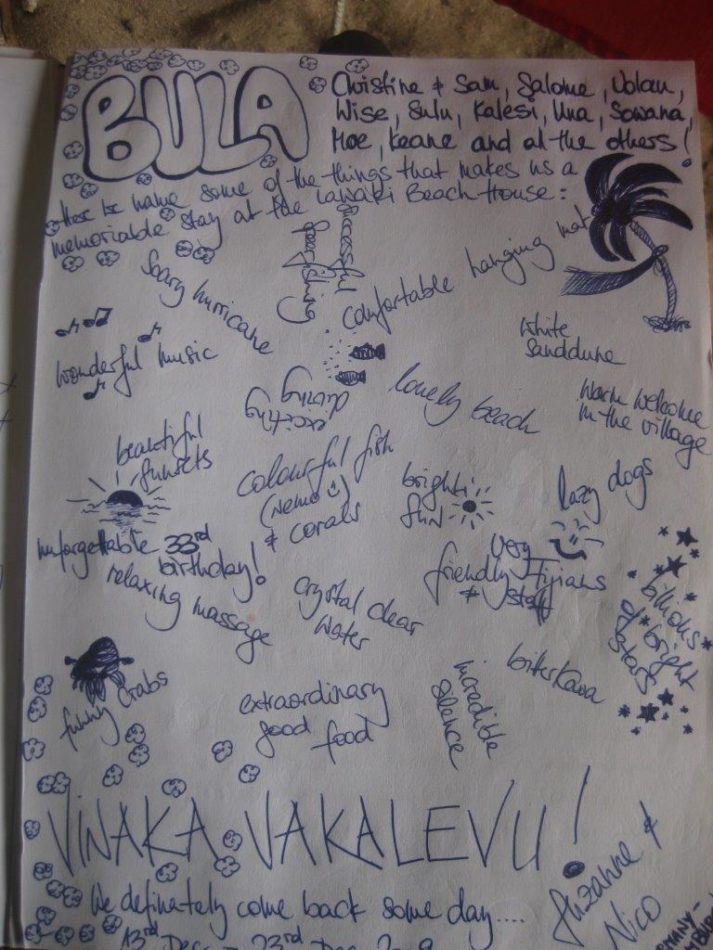 BULA
Christine & Sam, Salome,
Wise, Sulu, Kalesi, Una, Sowana,
Moe, Keane and all the others!
name some of the things that makes us a
memoriable stay at the Lawaki Beach House:
Successful
spearfishing
Scary hurricane
comfortable hanging mat
White
sanddune
wonderful music
exciting
diving
lonely beach
Warm welcome
in the village
beautiful
sunsets
colourful fish
(Nemo)
& corals
bright
sun
lazy dogs
unforgettable 33rd
birthday!
relaxing massage
crystal clear
water
very
friendly Fijians
& staff
billions
of bright
stars
funny crabs
extraordinary
good food
incredible
silence
bitter Kava
VINAKA VAKALEVU!
We definately come back some day....
Suzanne &
Nico
13rd Dec - 23rd Dec